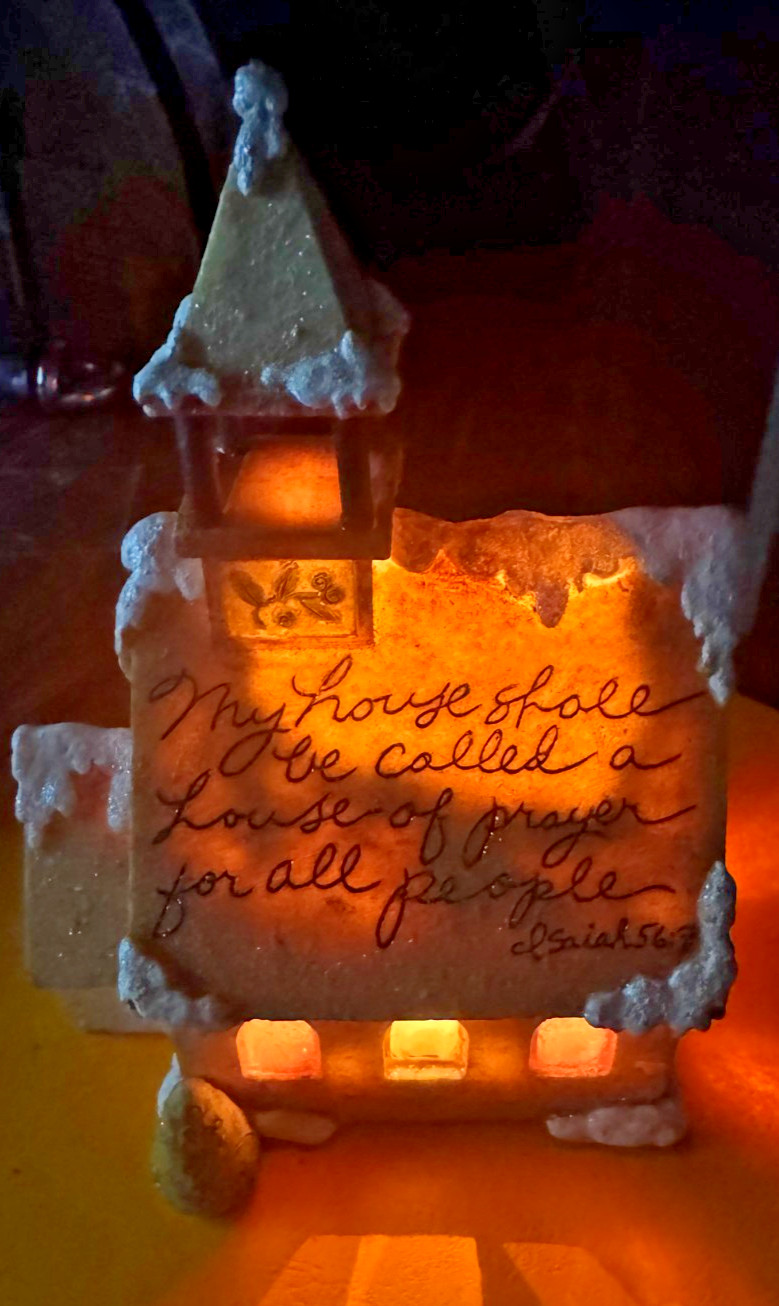 My house shall
be called a
house of prayer
for all people
Isaiah 56:7